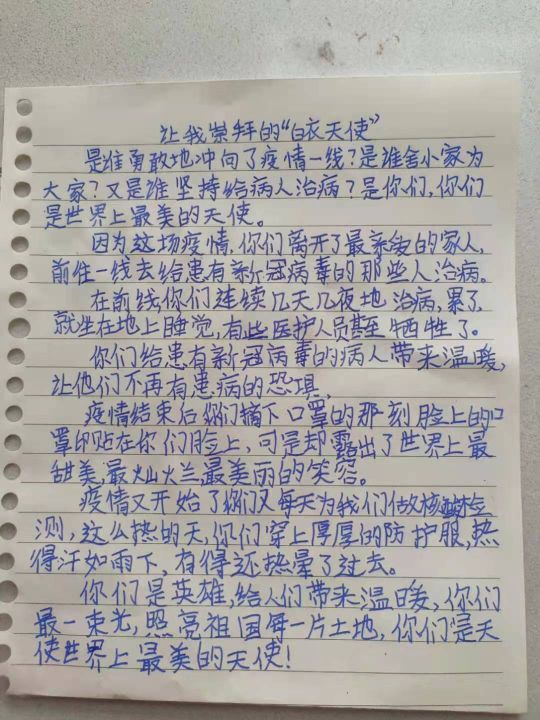 让我崇拜的“白衣天使”
是谁勇敢地冲向了疫情一线?是谁舍小家为
大家?又是谁坚持给病人治病?是你们,你们
是世界上最美的天使。
因为这场疫情,你们离开了最亲爱的家人,
前往一线去给患有新冠病毒的那些人治病。
在前线,你们连续几天几夜地治病,累了,
就坐在地上睡觉,有些医护人员甚至牺牲了。
你们给患有新冠病毒的病人带来温暖,
让他们不再有患病的恐惧,
疫情结束后你们摘下口罩的那刻脸上的口
罩印贴在你们脸上,可是却露出了世界上最
甜美,最灿烂最美丽的笑容。
疫情又开始了你们又每天为我们做核酸检
测,这么热的天,你们穿上厚厚的防护服,热
得汗如雨下,有得还热晕了过去。
你们是英雄,给人们带来温暖,你们
最一束光,照亮祖国每一片土地,你们是天
使世界上最美的天使!